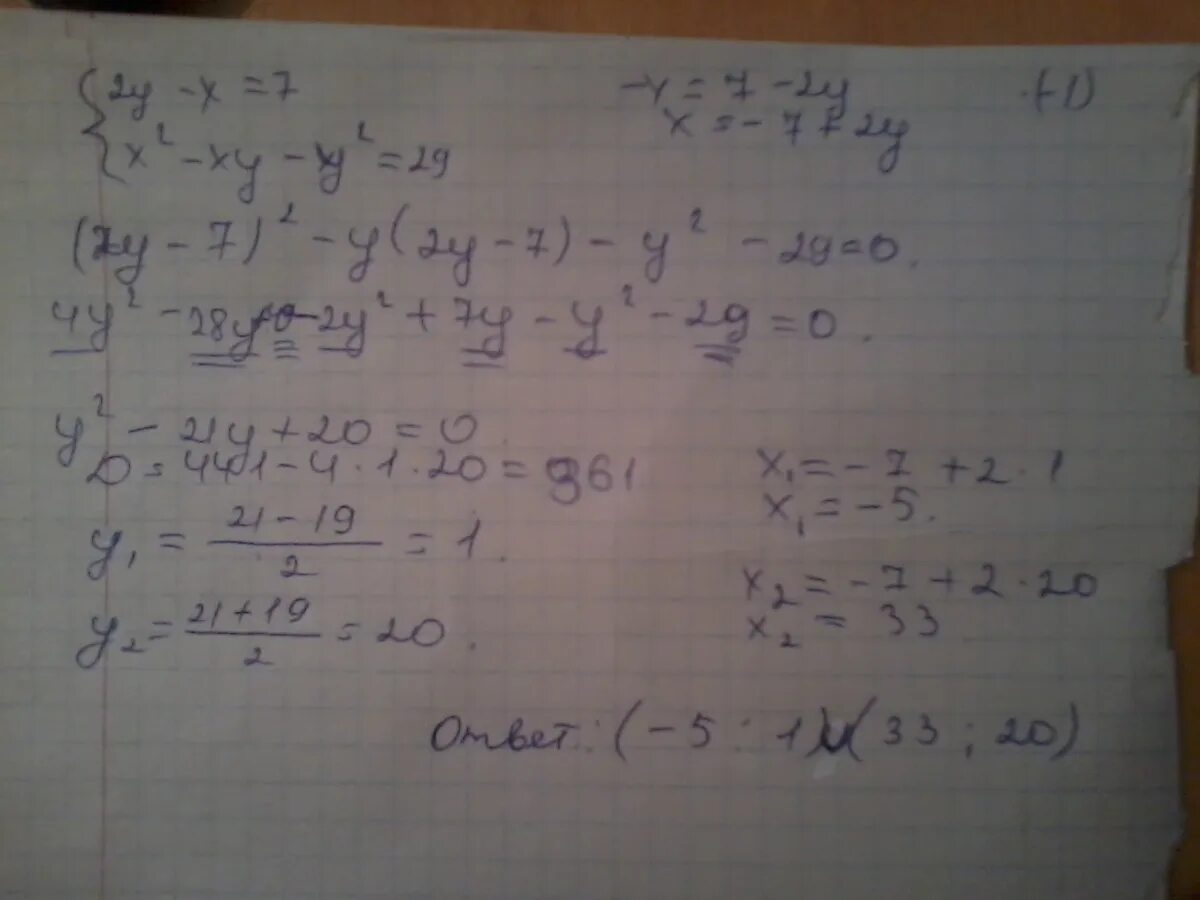 2y - x = 7
x² - xy - y² = 29
-x = 7 - 2y (-1)
x = -7 + 2y
(2y - 7)² - y(2y - 7) - y² - 29 = 0.
4y² - 28y - 2y² + 7y - y² - 29 = 0.
y² - 21y + 20 = 0.
D = 441 - 4 · 1 · 20 = 361
y₁ = (21 - 19)/2 = 1.
y₂ = (21 + 19)/2 = 20.
x₁ = -7 + 2 · 1
x₁ = -5.
x₂ = -7 + 2 · 20
x₂ = 33
Ответ: (-5 ; 1) и (33 ; 20)